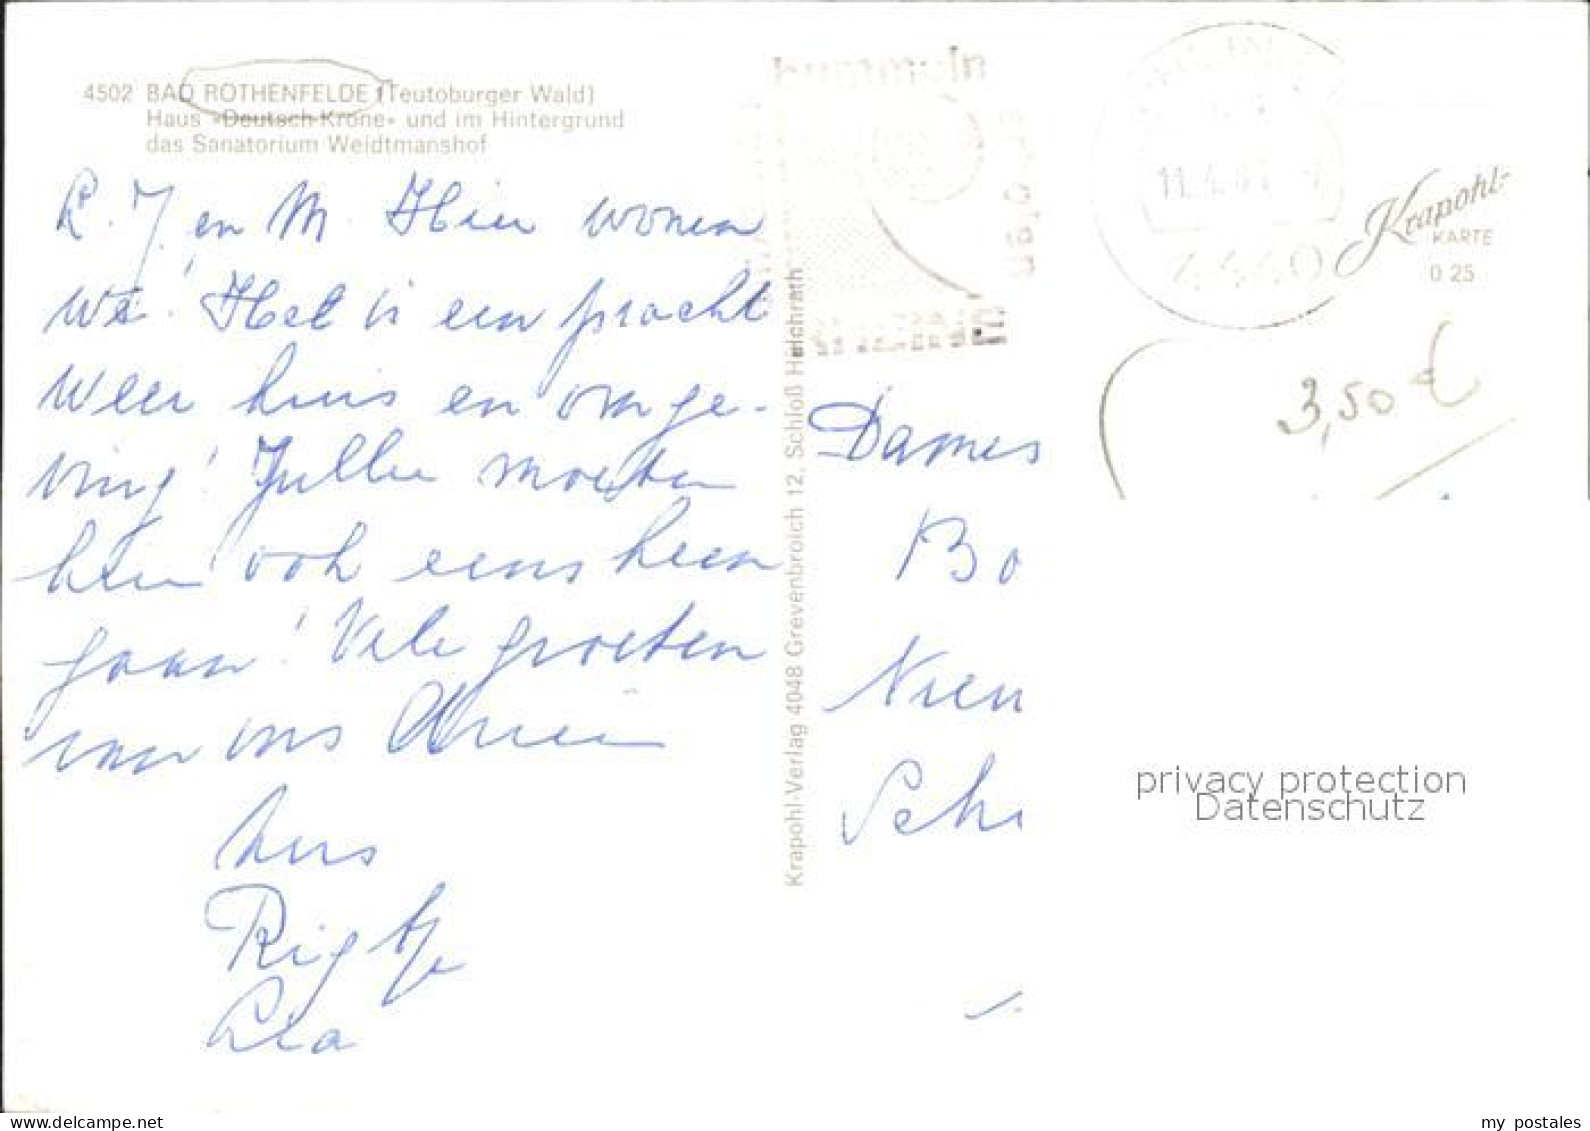 4502 BAD ROTHENFELDE (Teutoburger Wald)
Haus »Deutsch-Krone« und im Hintergrund
das Sanatorium Weidtmanshof
L. J. en M. Hier wonen
we! Het is een pracht
weer huis en omge-
ving! Jullie moeten
hier ook eens heen
gaan! Vele groeten
van ons
Rigtje
Lia
Krapohl-Verlag 4048 Grevenbroich 12, Schloß Hülchrath
4440
Krapohl-
KARTE
0 25
3,50 €
Dames
Bo
Nien
Sch
privacy protection
Datenschutz
delcampe.net
my_postales